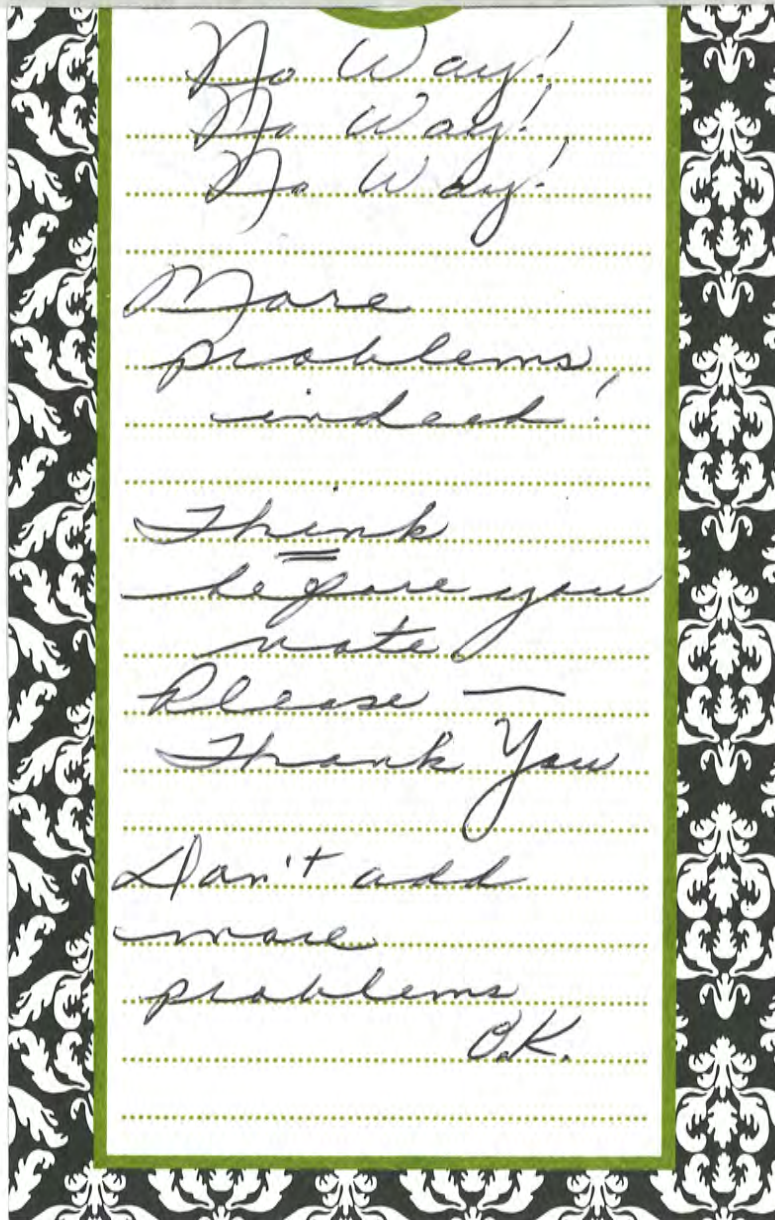 No Way!
No Way!
No Way!
More
problems
indeed!
Think
before you
vote
Please —
Thank You
Don't add
more
problems
O.K.